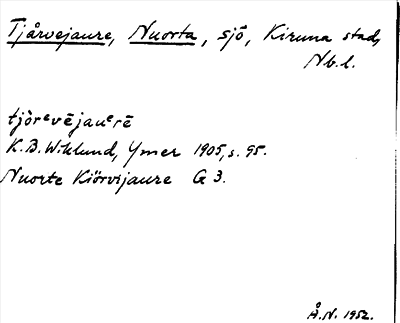 Tjårvejaure, Nuorta, sjö, Kiruna stad,
Nb.l.
tjörᵉvējauᵉrē
K.B. Wiklund, Ymer 1905, s. 95.
Nuorte Kiörvijaure G 3.
Å.N. 1952.